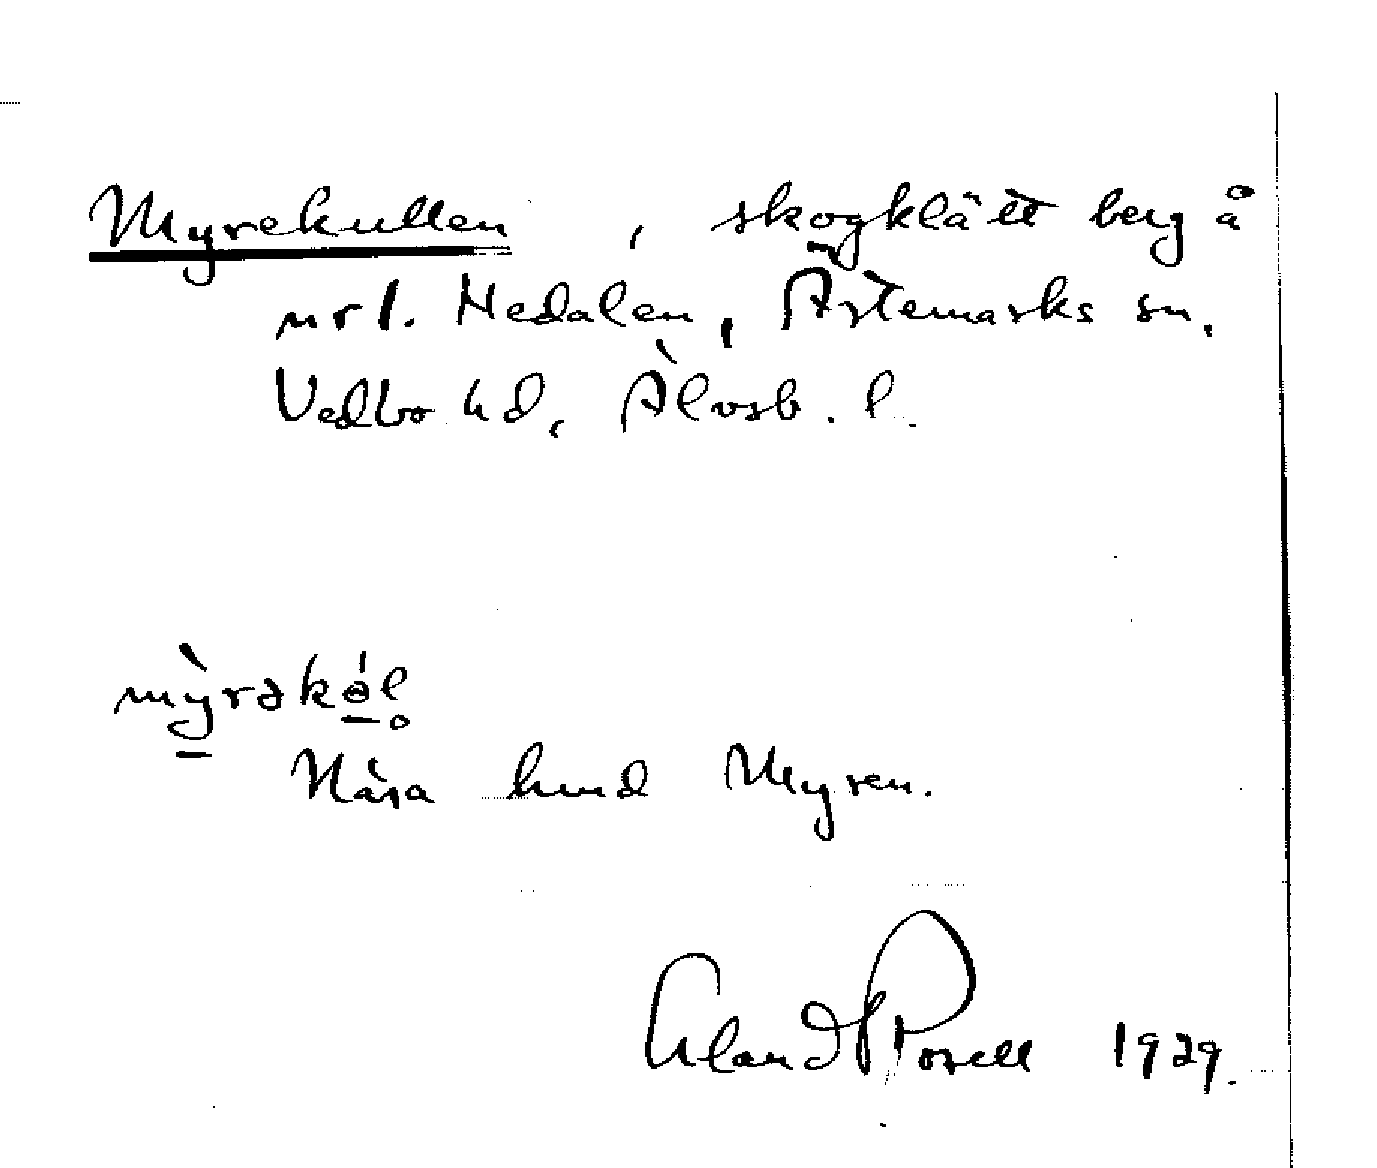 Myrekullen, skogklätt berg å
nrl. Nedalen, Ärtemarks sn,
Vedbo hd, Älvsb. l.
mỳrəkə́l
Nära hmd Myren.
Erland Rosell 1929.